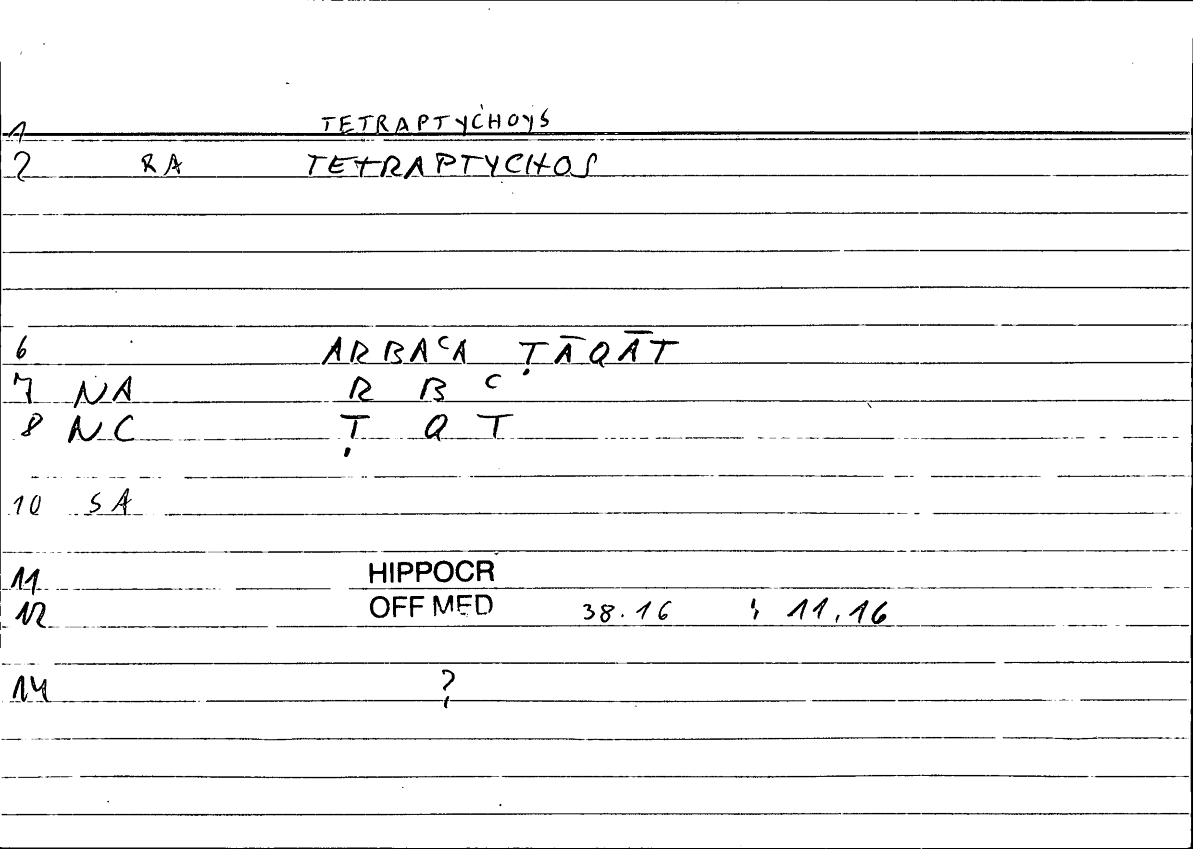 1 TETRAPTYCHOYS
2 RA TETRAPTYCHOS
6 ARBAᶜA ṬĀQĀT
7 NA R B ᶜ
8 NC Ṭ Q T
10 SA
11 HIPPOCR
12 OFF MED 38.16 ; 11,16
14 ?